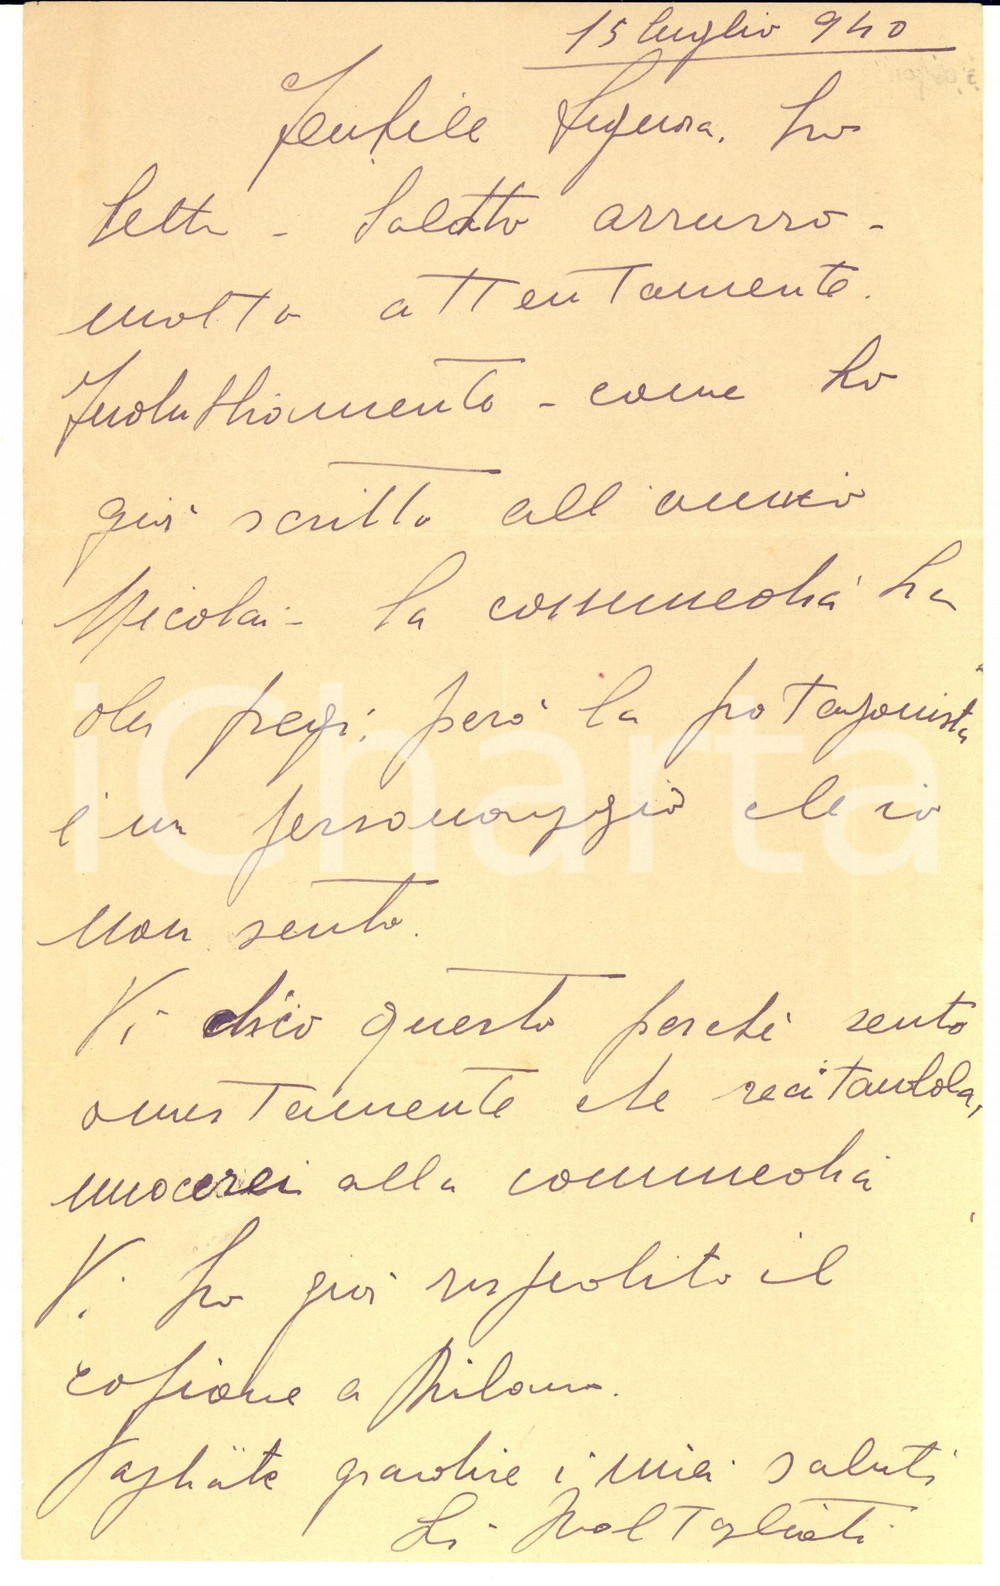 15 luglio 940
Gentile Signora, ho
letto - Salotto azzurro -
molto attentamente.
Indubbiamente - come ho
già scritto all'amico
Nicolai - la commedia ha
dei pregi; però la protagonista
è un personaggio che io
non sento.
Vi dico questo perché sento
onestamente che recitandola,
nuocerei alla commedia
Vi ho già rispedito il
copione a Milano.
Vogliate gradire i miei saluti
Maltagliati
iCharta